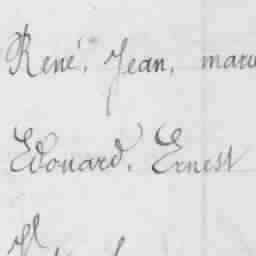 René, Jean,
Edouard, Ernest